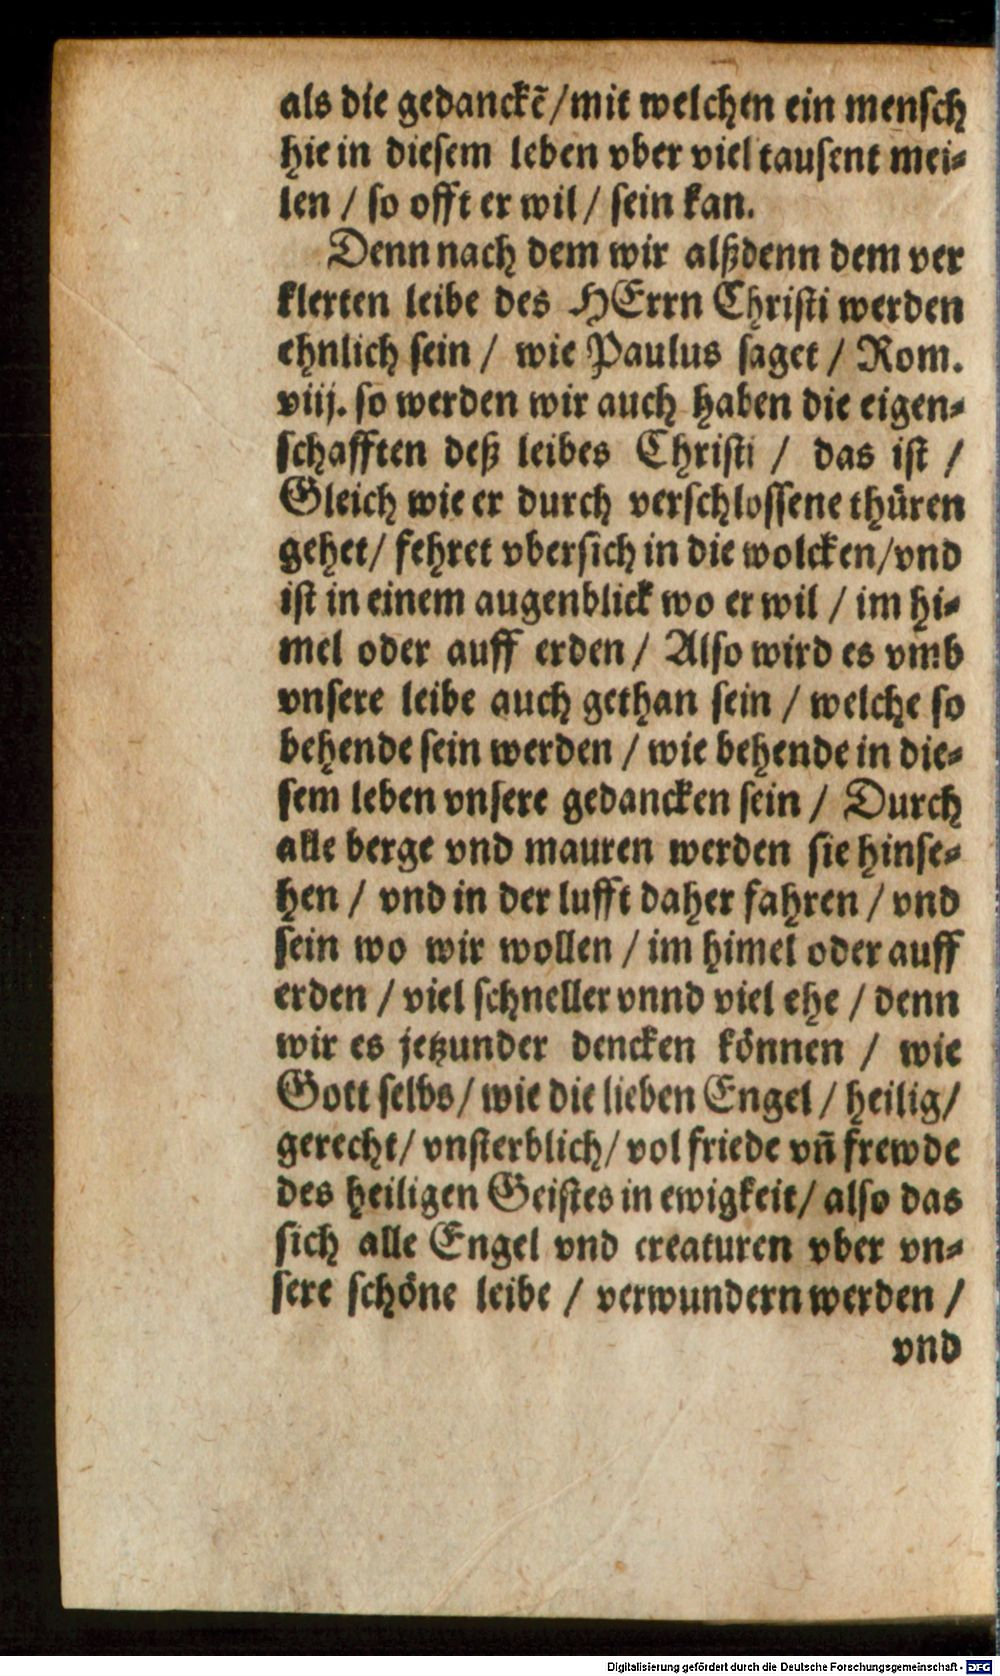 als die gedanckē/mit welchen ein mensch
hie in diesem leben vber viel tausent mei-
len / so offt er wil / sein kan.
Denn nach dem wir alßdenn dem ver
klerten leibe des HErrn Christi werden
ehnlich sein / wie Paulus saget / Rom.
viij. so werden wir auch haben die eigen-
schafften deß leibes Christi / das ist /
Gleich wie er durch verschlossene thüren
gehet/ fehret vbersich in die wolcken/vnd
ist in einem augenblick wo er wil / im hi-
mel oder auff erden / Also wird es vmb
vnsere leibe auch gethan sein / welche so
behende sein werden / wie behende in die-
sem leben vnsere gedancken sein / Durch
alle berge vnd mauren werden sie hinse-
hen / vnd in der lufft daher fahren / vnd
sein wo wir wollen / im himel oder auff
erden / viel schneller vnnd viel ehe / denn
wir es jetzunder dencken können / wie
Gott selbs/ wie die lieben Engel / heilig/
gerecht/ vnsterblich/ vol friede vn̄ frewde
des heiligen Geistes in ewigkeit/ also das
sich alle Engel vnd creaturen vber vn-
sere schöne leibe / verwundern werden /
vnd
Digitalisierung gefördert durch die Deutsche Forschungsgemeinschaft - DFG